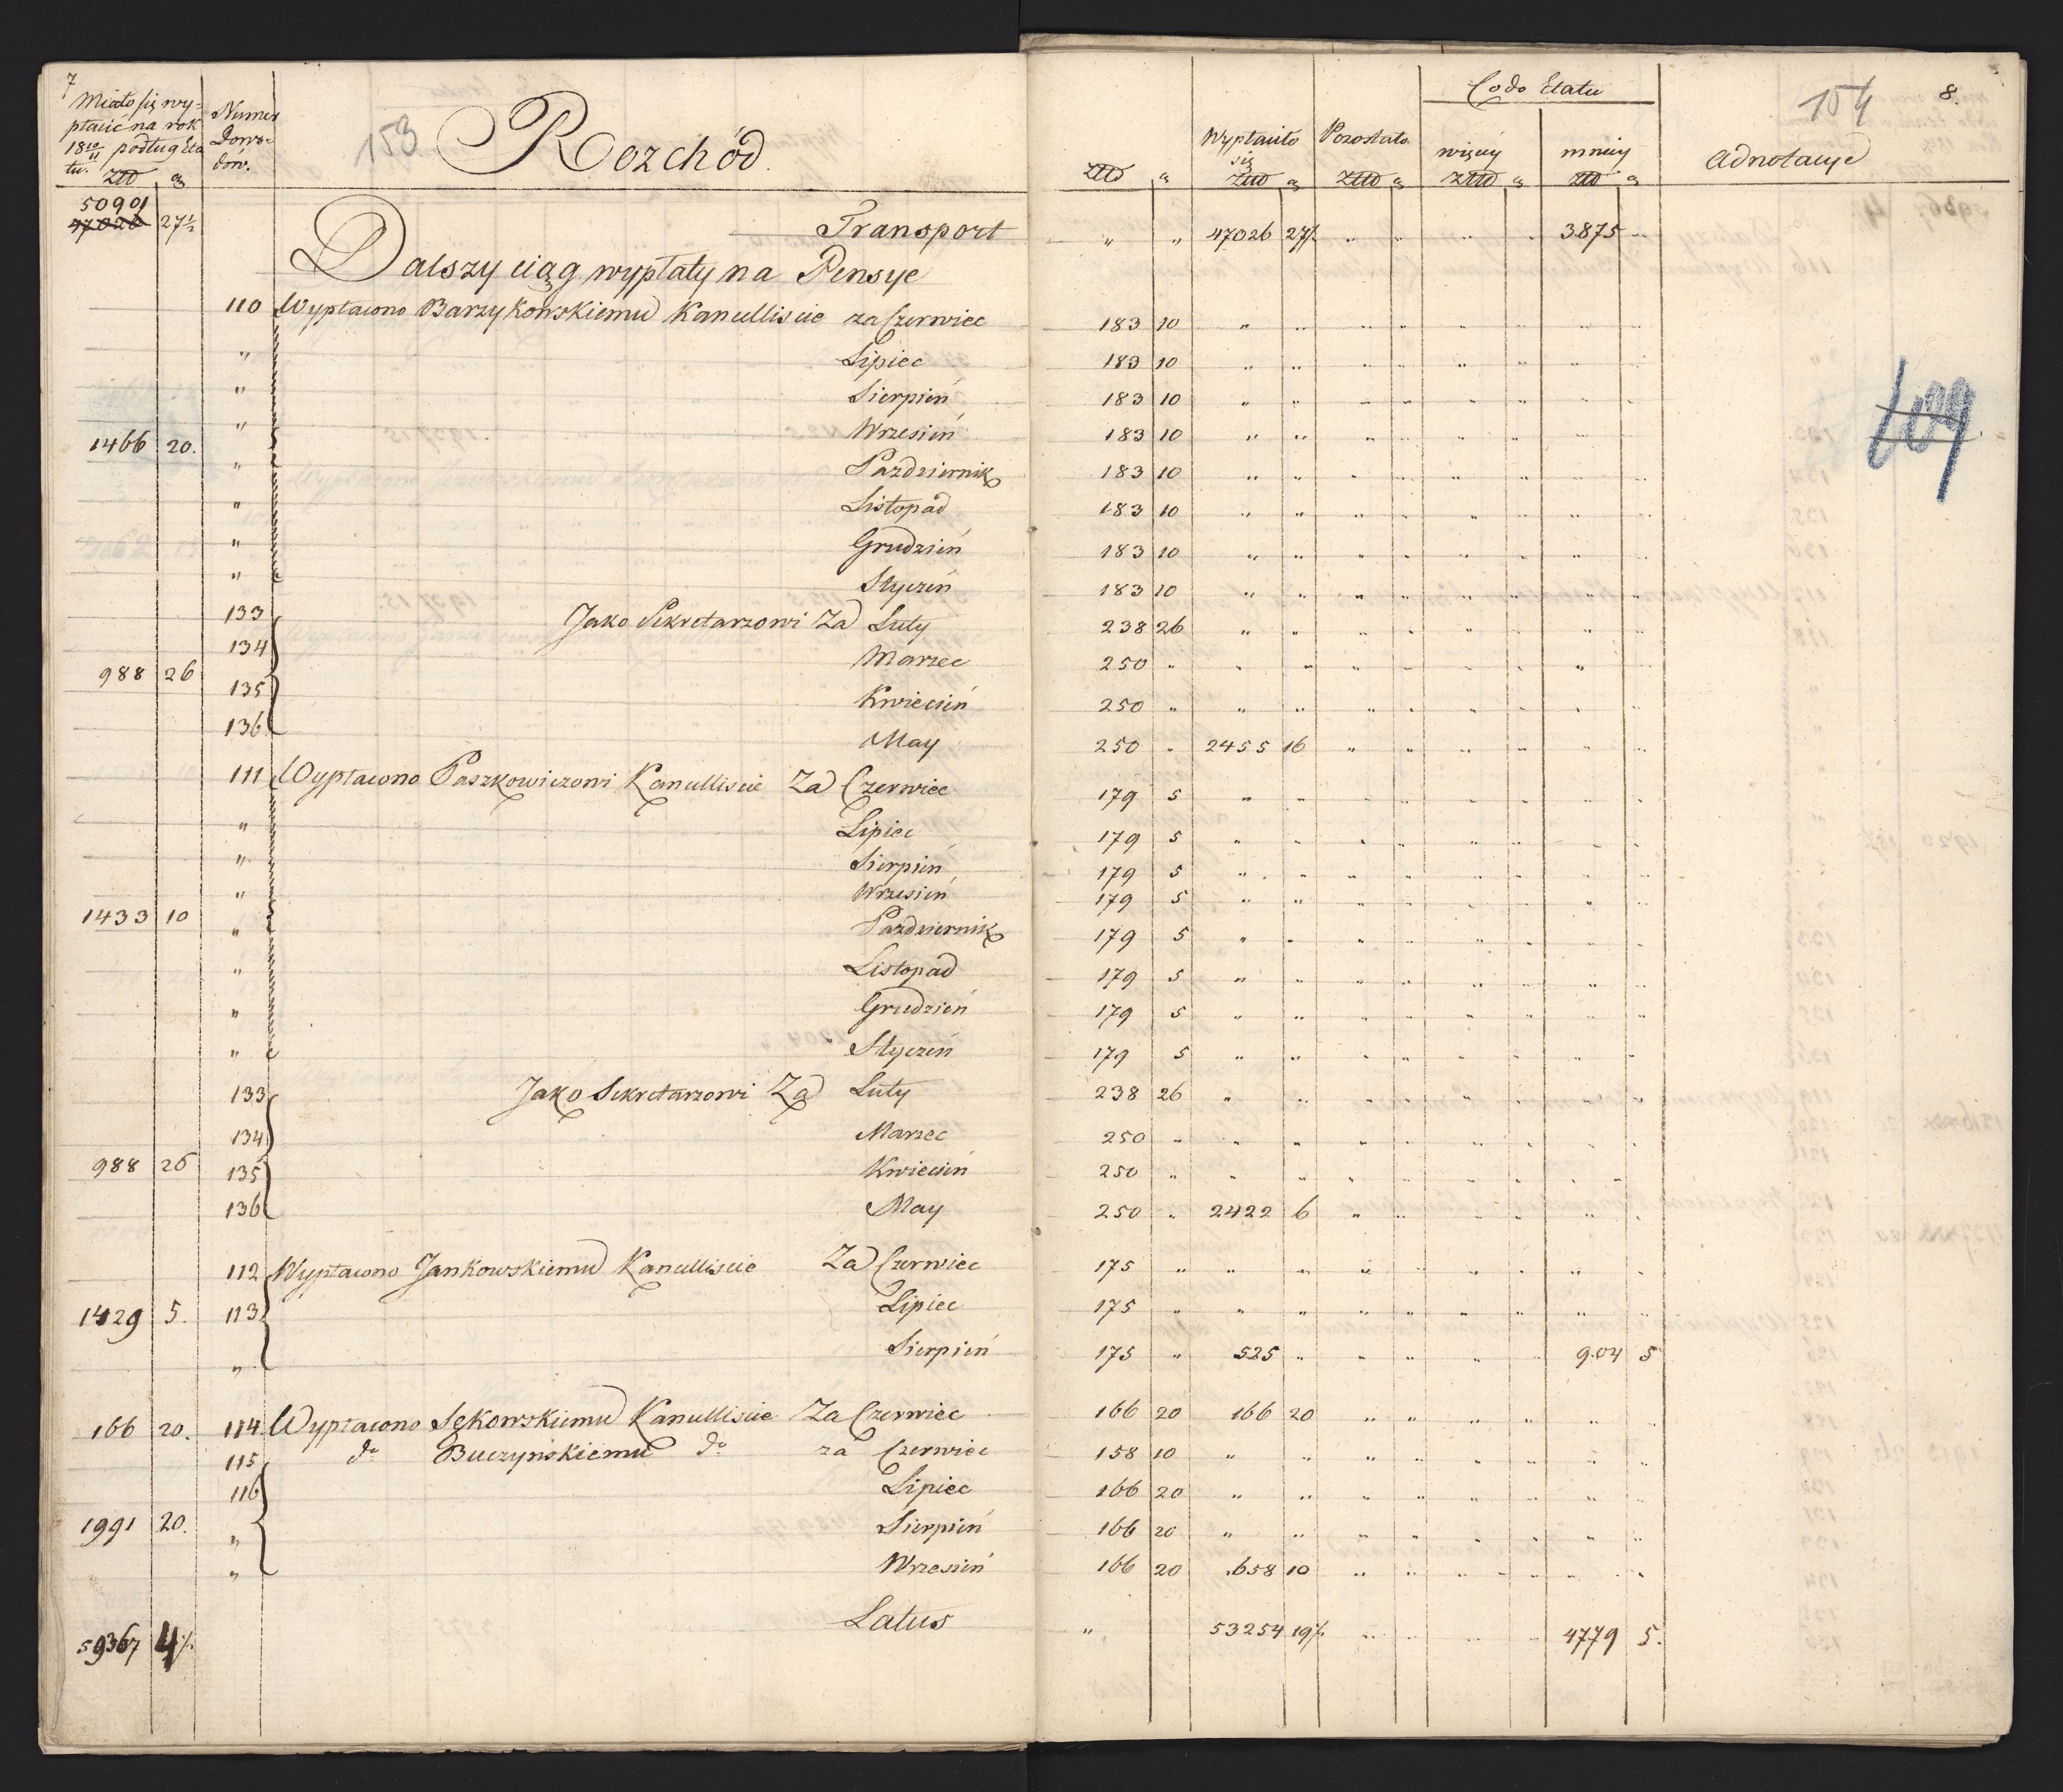 7
Miało się wy-
płacić na rok
18 10/11 podług Eta
tu.
Złł gr
Numer
Dowo-
dów.
153
Rozchód
Złł gr
Wypłaciło
się
Złł gr
Pozostało
Złł gr
Co do Etatu
więcy
Złł gr
mniey
Złł gr
Adnotacye
154
8.
50901
47026 27½ Transport " " 47026 27½ " " " " 3875 "
Dalszy ciąg wypłaty na Pensye
110 Wypłacono Barzykowskiemu Kancelliscie za Czerwiec 183 10
" Lipiec 183 10
" Sierpień 183 10
1466 20. " Wrzesień 183 10
" Pazdziernik 183 10
" Listopad 183 10
" Grudzień 183 10
" Styczeń 183 10
133 Jako Sekretarzowi Za Luty 238 26
134 Marzec 250 "
988 26 135 Kwiecień 250 "
136 May 250 " 2455 16
111 Wypłacono Paszkowiczowi Kancelliscie Za Czerwiec 179 5
" Lipiec 179 5
" Sierpień 179 5
" Wrzesień 179 5
1433 10 " Pazdziernik 179 5
" Listopad 179 5
" Grudzień 179 5
" Styczeń 179 5
133 Jako Sekretarzowi Za Luty 238 26
134 Marzec 250 "
988 26 135 Kwiecień 250 "
136 May 250 " 2422 6
112 Wypłacono Jankowskiemu Kancelliscie Za Czerwiec 175 "
1429 5. 113 Lipiec 175 "
" Sierpień 175 " 525 " " " " " 904 5
166 20. 114 Wypłacono Sękowskiemu Kancelliscie Za Czerwiec 166 20 166 20
115 do Buczyńskiemu do za Czerwiec 158 10
116 Lipiec 166 20
1991 20. " Sierpień 166 20
" Wrzesień 166 20 658 10
59367 4½ Latus " 53254 19½ " " " " 4779 5.
109